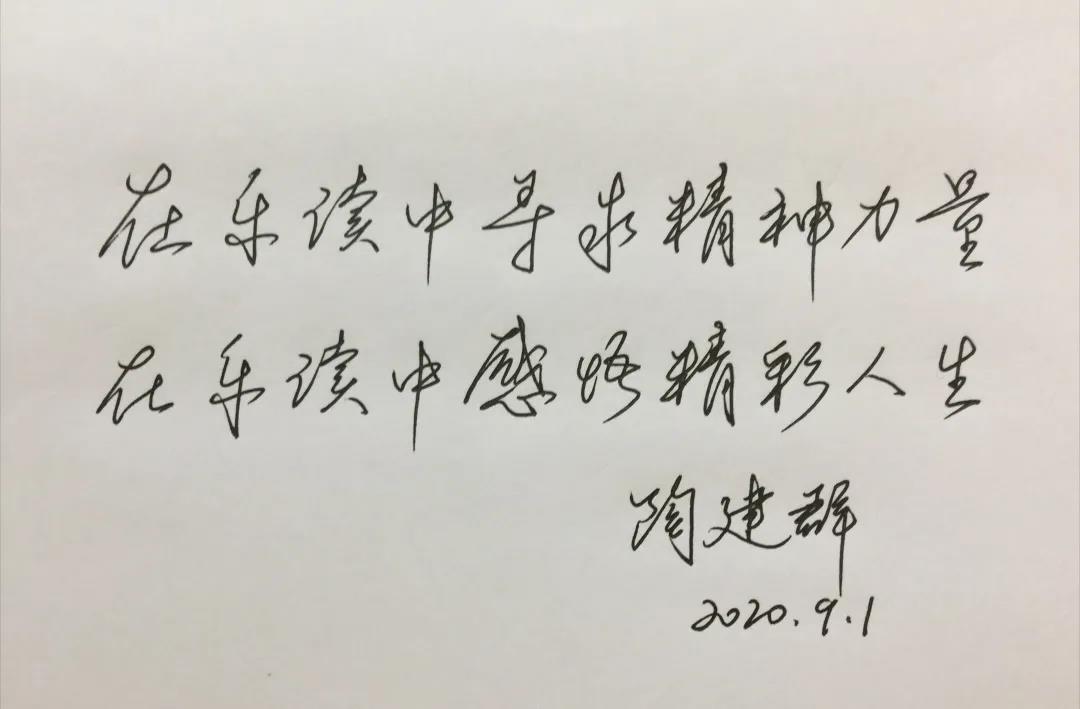 在乐读中寻求精神力量
在乐读中感悟精彩人生
陶建群
2020.9.1